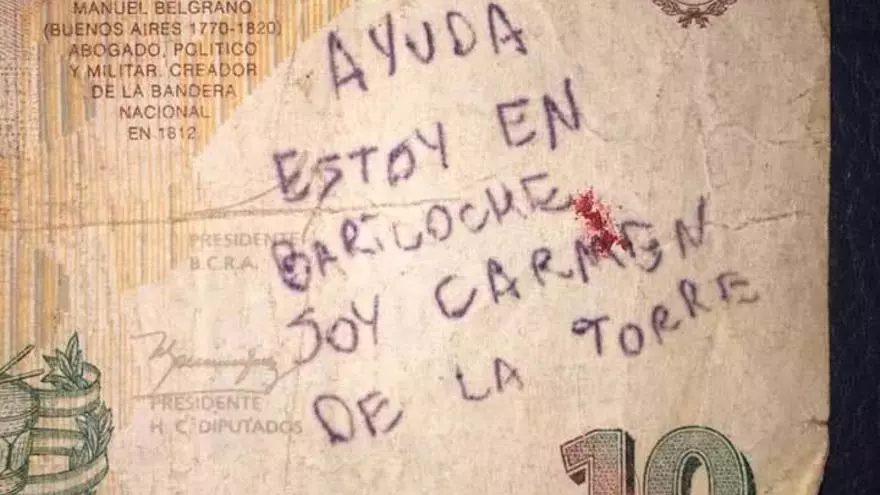 MANUEL BELGRANO
(BUENOS AIRES 1770-1820)
ABOGADO, POLITICO
Y MILITAR. CREADOR
DE LA BANDERA
NACIONAL
EN 1812
AYUDA
ESTOY EN
BARILOCHE
SOY CARMEN
DE LA TORRE
PRESIDENTE
B.C.R.A.
PRESIDENTE
H. C. DIPUTADOS
10